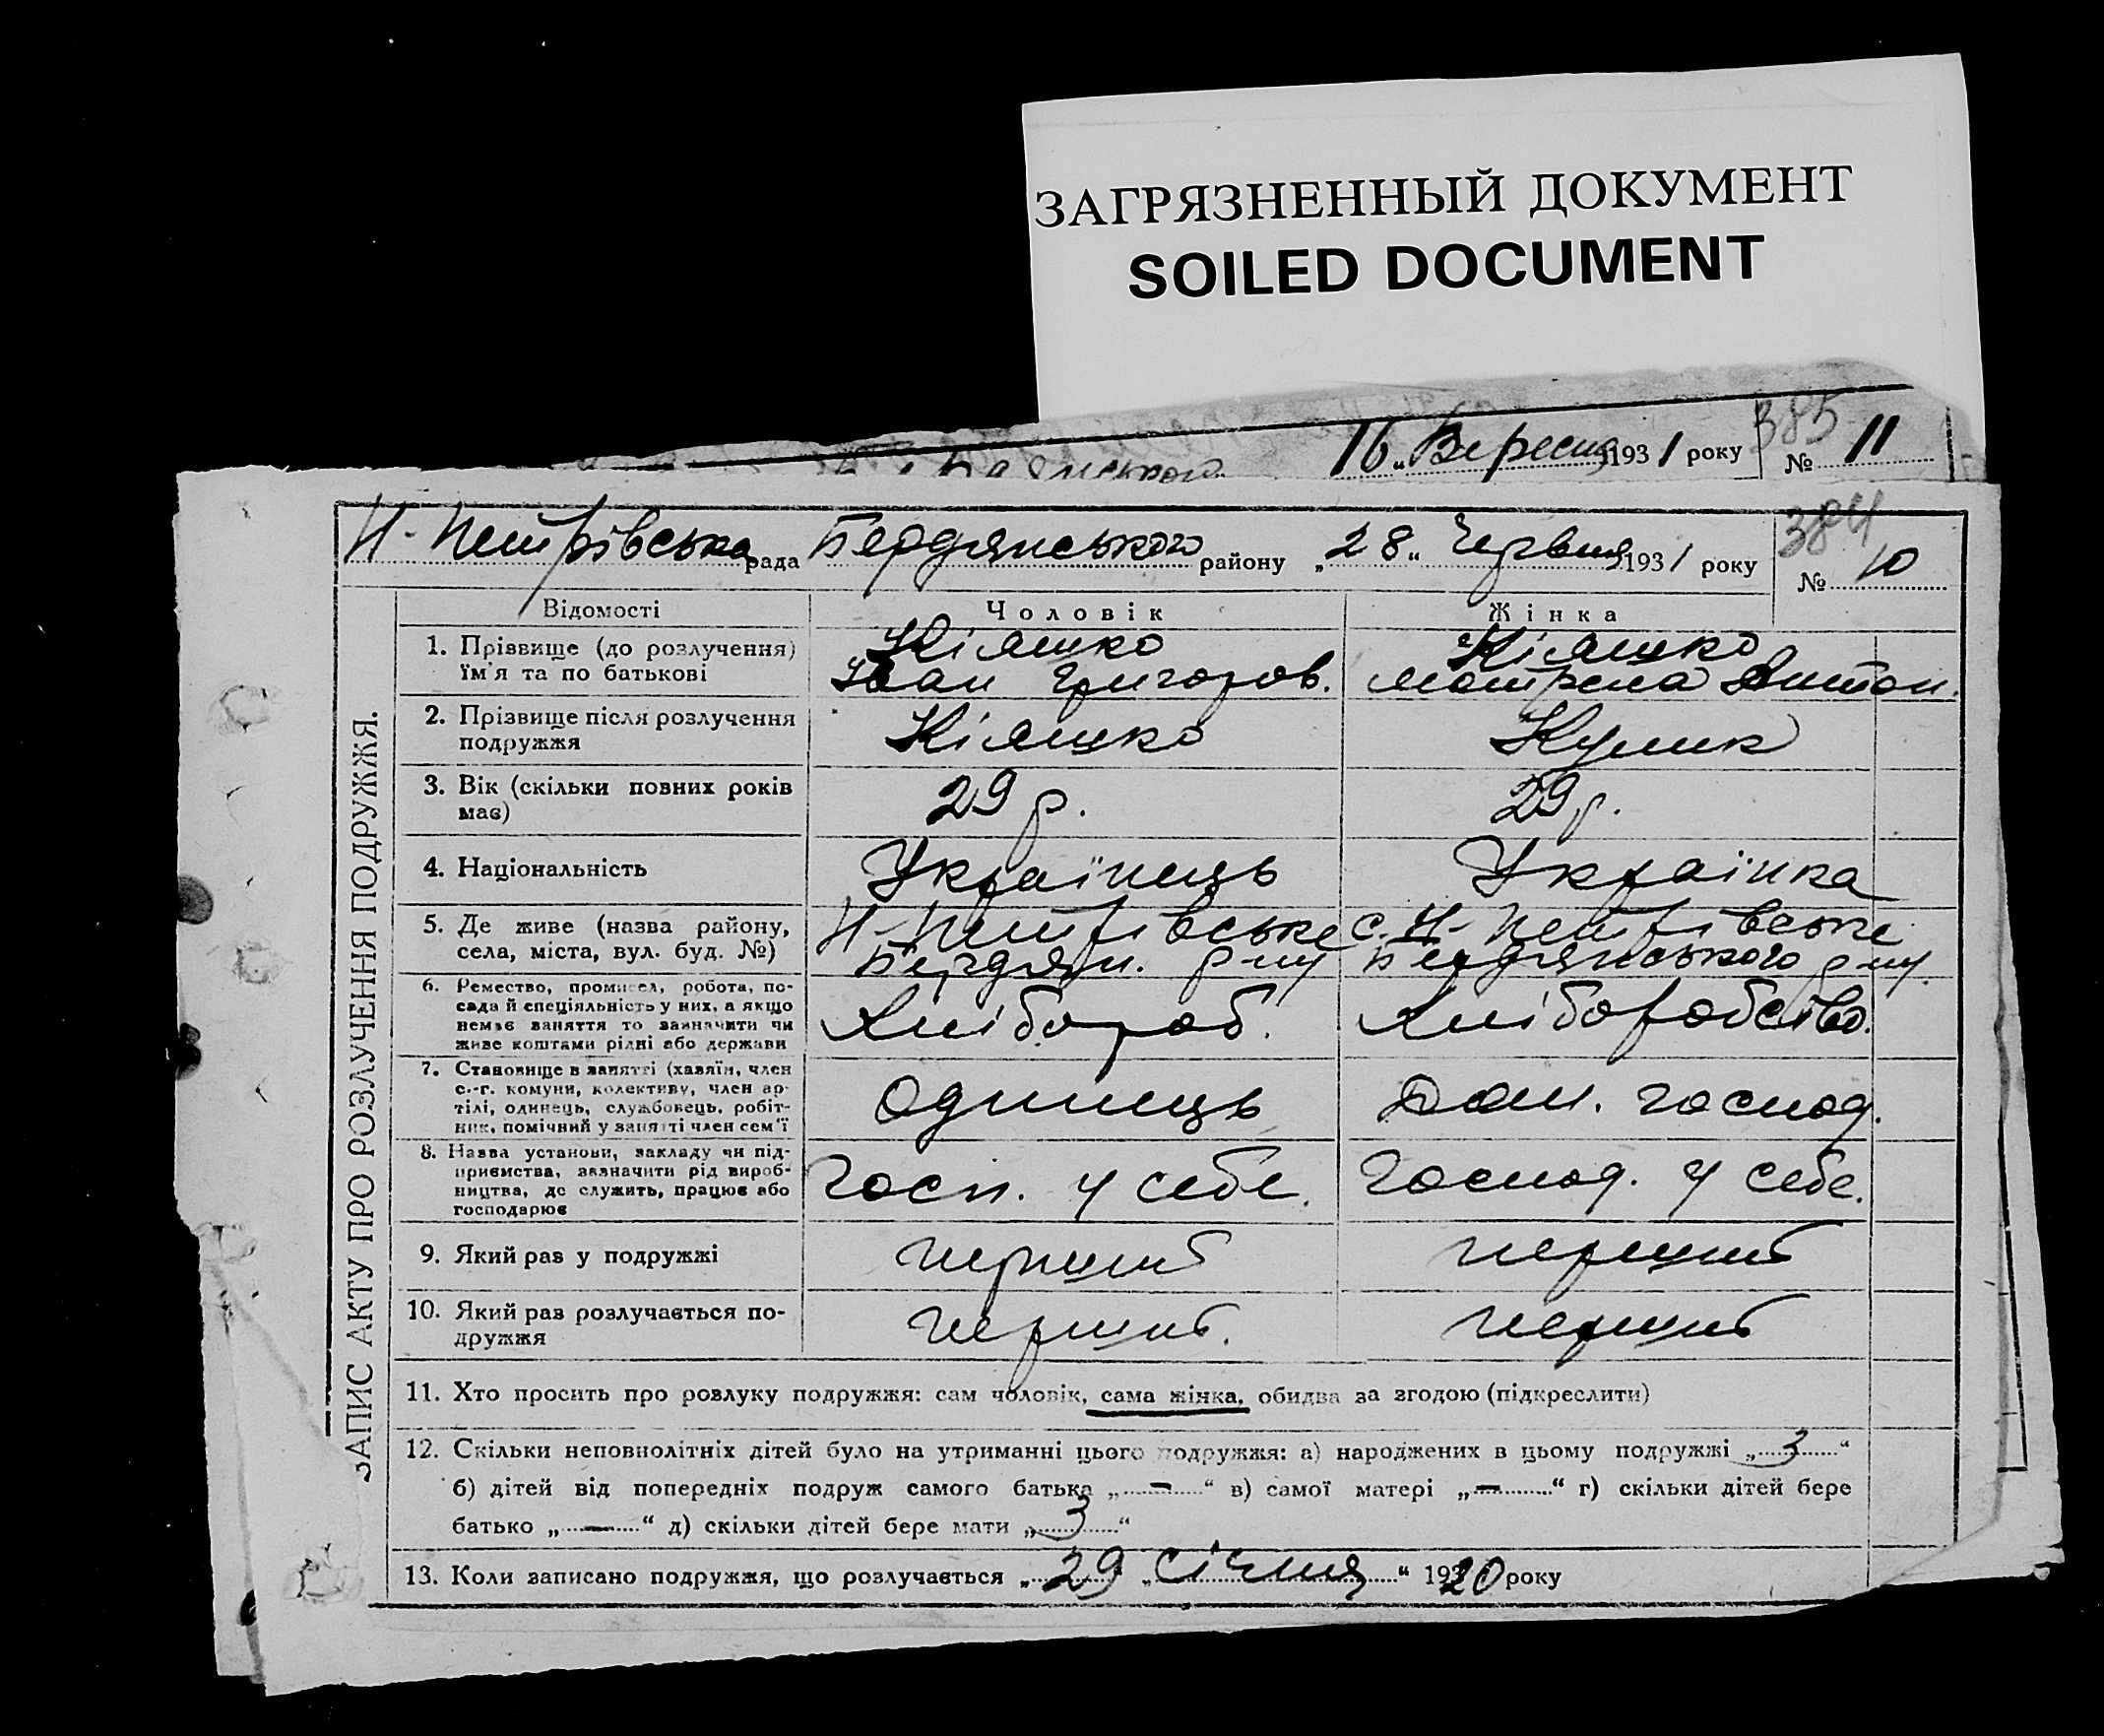 ЗАГРЯЗНЕННЫЙ ДОКУМЕНТ
SOILED DOCUMENT
385
16 „ Вересня 1931 року № 11
384
Н-Петрівська рада Бердянського району „28“ Червня 1931 року № 10
ЗАПИС АКТУ ПРО РОЗЛУЧЕННЯ ПОДРУЖЖЯ.
Відомості Чоловік Жінка
1. Прізвище (до розлучення) Кіяшко Кіяшко
ім'я та по батькові Іван Григоров. Мотрена Антон.
2. Прізвище після розлучення Кіяшко Кулик
подружжя
3. Вік (скільки повних років 29 р. 29 р.
має)
4. Національність Українець Українка
5. Де живе (назва району, Н-Петрівське с. Н-Петрівське
села, міста, вул. буд. №) Бердян. р-ну Бердянського р-ну.
6. Ремество, промисел, робота, по-
сада й спеціяльність у них, а якщо Хлібороб. Хліборобство.
немає заняття то зазначити чи
живе коштами рідні або держави
7. Становище в занятті (хазяїн, член
с.-г. комуни, колективу, член ар- Одинець Дом. господ.
тілі, одинець, службовець, робіт-
ник, помічний у занятті член сем'ї
8. Назва установи, закладу чи під-
приємства, зазначити рід вироб- Госп. у себе. Господ. у себе.
ництва, де служить, працює або
господарює
9. Який раз у подружжі перший перший
10. Який раз розлучається по- перший. перший
дружжя
11. Хто просить про розлуку подружжя: сам чоловік, сама жінка, обидва за згодою (підкреслити)
12. Скільки неповнолітніх дітей було на утриманні цього подружжя: а) народжених в цьому подружжі „3“
б) дітей від попередніх подруж самого батька „—“ в) самої матері „—“ г) скільки дітей бере
батько „—“ д) скільки дітей бере мати „3“
13. Коли записано подружжя, що розлучається „29 „ січня “ 1920 року